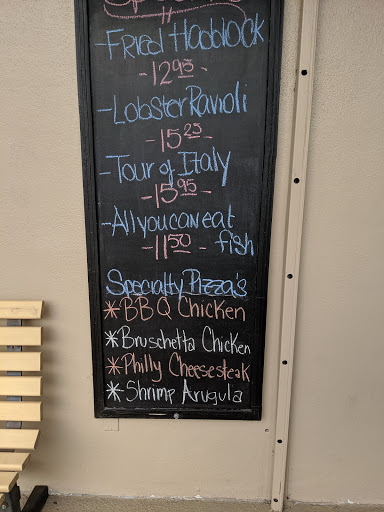 -Fried Haddock
-12.95-
-Lobster Ravioli
-15.25-
-Tour of Italy
-15.95-
-All you can eat
-11.50- fish
Specialty Pizza's
*BBQ Chicken
*Bruschetta Chicken
*Philly Cheesesteak
*Shrimp Arugula